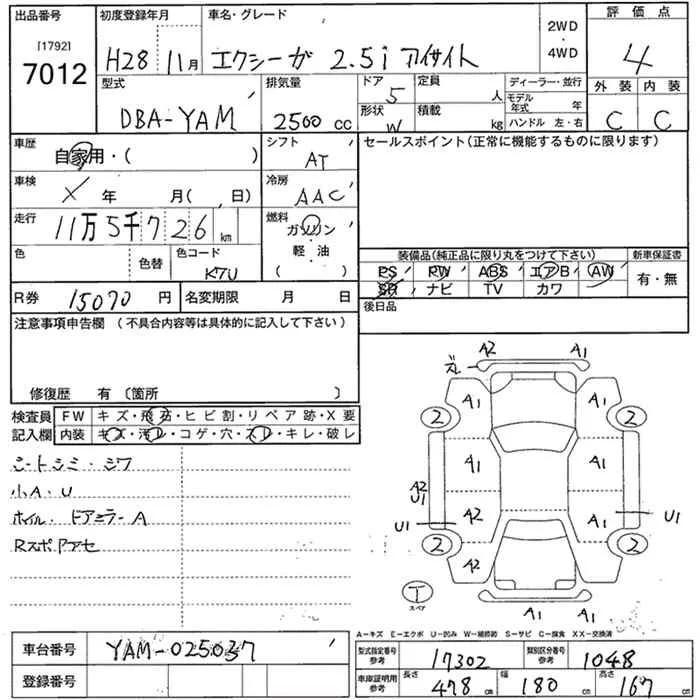 出品番号 初度登録年月 車名・グレード 2WD 評価点
[1792] ・
7012 H28 11月 エクシーガ 2.5i アイサイト 4WD 4
型式 排気量 ドア 定員 ディーラー・並行 外装 内装
5 人 モデル年式 年
DBA-YAM 2500 cc 形状 積載 C C
W kg ハンドル 左・右
車歴 自家用・( ) シフト セールスポイント(正常に機能するものに限ります)
AT
車検 X 年 月( 日) 冷房
AAC
走行 11万5千726 km 燃料
ガソリン
色 色替 色コード 軽・油 装備品(純正品に限り丸をつけて下さい) 新車保証書
KTU ( ) PS PW ABS エアB AW 有・無
R券 15070 円 名変期限 月 日 SR ナビ TV カワ
注意事項申告欄 (不具合内容等は具体的に記入して下さい) 後日品
修復歴 有 〔箇所 〕
検査員 FW キズ・飛石・ヒビ割・リペア跡・X要
記入欄 内装 キズ・汚レ・コゲ・穴・スレ・キレ・破レ
シートシミ・シワ
小A・U
ホイル・ドアミラーA
RスポPアセ
A2 A1
ズレ
A1 A1
2 2
A1 A1
A2
U1 A2 A1 U1
2 2
A2 A1
T
スペア A1 A1
A-キズ E-エクボ U-凹み W-補修跡 S-サビ C-腐食 XX-交換済
車台番号 YAM-025037 型式指定番号 参考 17302 類別区分番号 参考 1048
登録番号 車庫証明用 参考 長さ 478 cm 幅 180 cm 高さ 167 cm